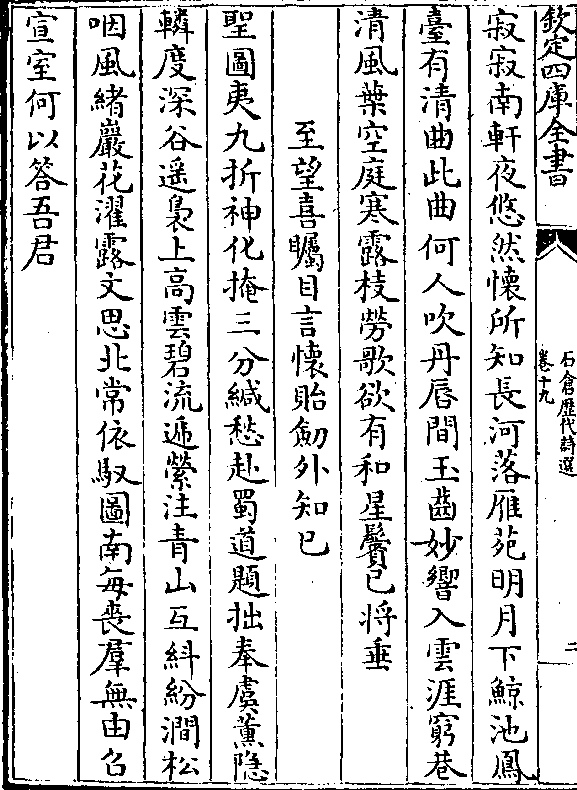 欽定四庫全書
石倉歷代詩選
卷十九
二
寂寂南軒夜悠然懷所知長河落雁苑明月下鯨池鳳
臺有清曲此曲何人吹丹唇間玉齒妙響入雲涯窮巷
清風葉空庭寒露枝勞歌欲有和星鬢已將垂
至望喜矚目言懷貽劒外知己
聖圖夷九折神化掩三分緘愁赴蜀道題拙奉虞薰隠
轔度深谷遥裊上高雲碧流逓縈注青山互糾紛澗松
咽風緒巖花濯露文思北常依馭圖南每喪羣無由召
宣室何以答吾君